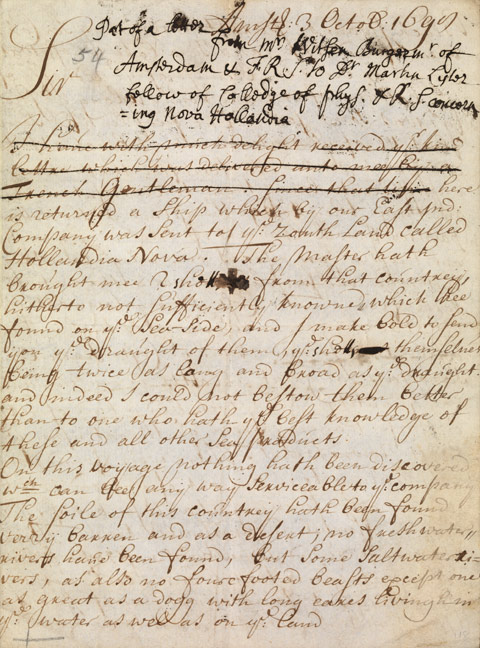 Part of a letter Amst: 3 Octob: 1698
from Mr Witsen Burgermr of
Sir 54
Amsterdam & F.R.S. to Dr Martin Lyster
fellow of Colledge of phys. & R.S. concern
=ing Nova Hollandia
I have with much delight received yr kind
letter which was delivered unto mee by a
French Gentleman. Since that time here
is returned a Ship wherein by our East Ind:
Company was sent to ye South Land called
Hollandia Nova. The Master hath
brought mee 2 shells from that countrey,
hitherto not sufficiently knowne, which hee
found on ye Sea-Side, and I make bold to send
you ye draught of them, ye shells themselves
being twice as lang and broad as ye draught.
and indeed I could not bestow them better
than to one who hath ye best knowledge of
these and all other Sea products.
On this voyage nothing hath been discovered
wch can bee any way Serviceable to ye company
The soile of this countrey hath been found
verry barren and as a desert; no freshwater
rivers have been found, but some saltwater ri-
vers, as also no fourefooted beasts except one
as great as a dogg with long eares living in
ye water as well as on ye land